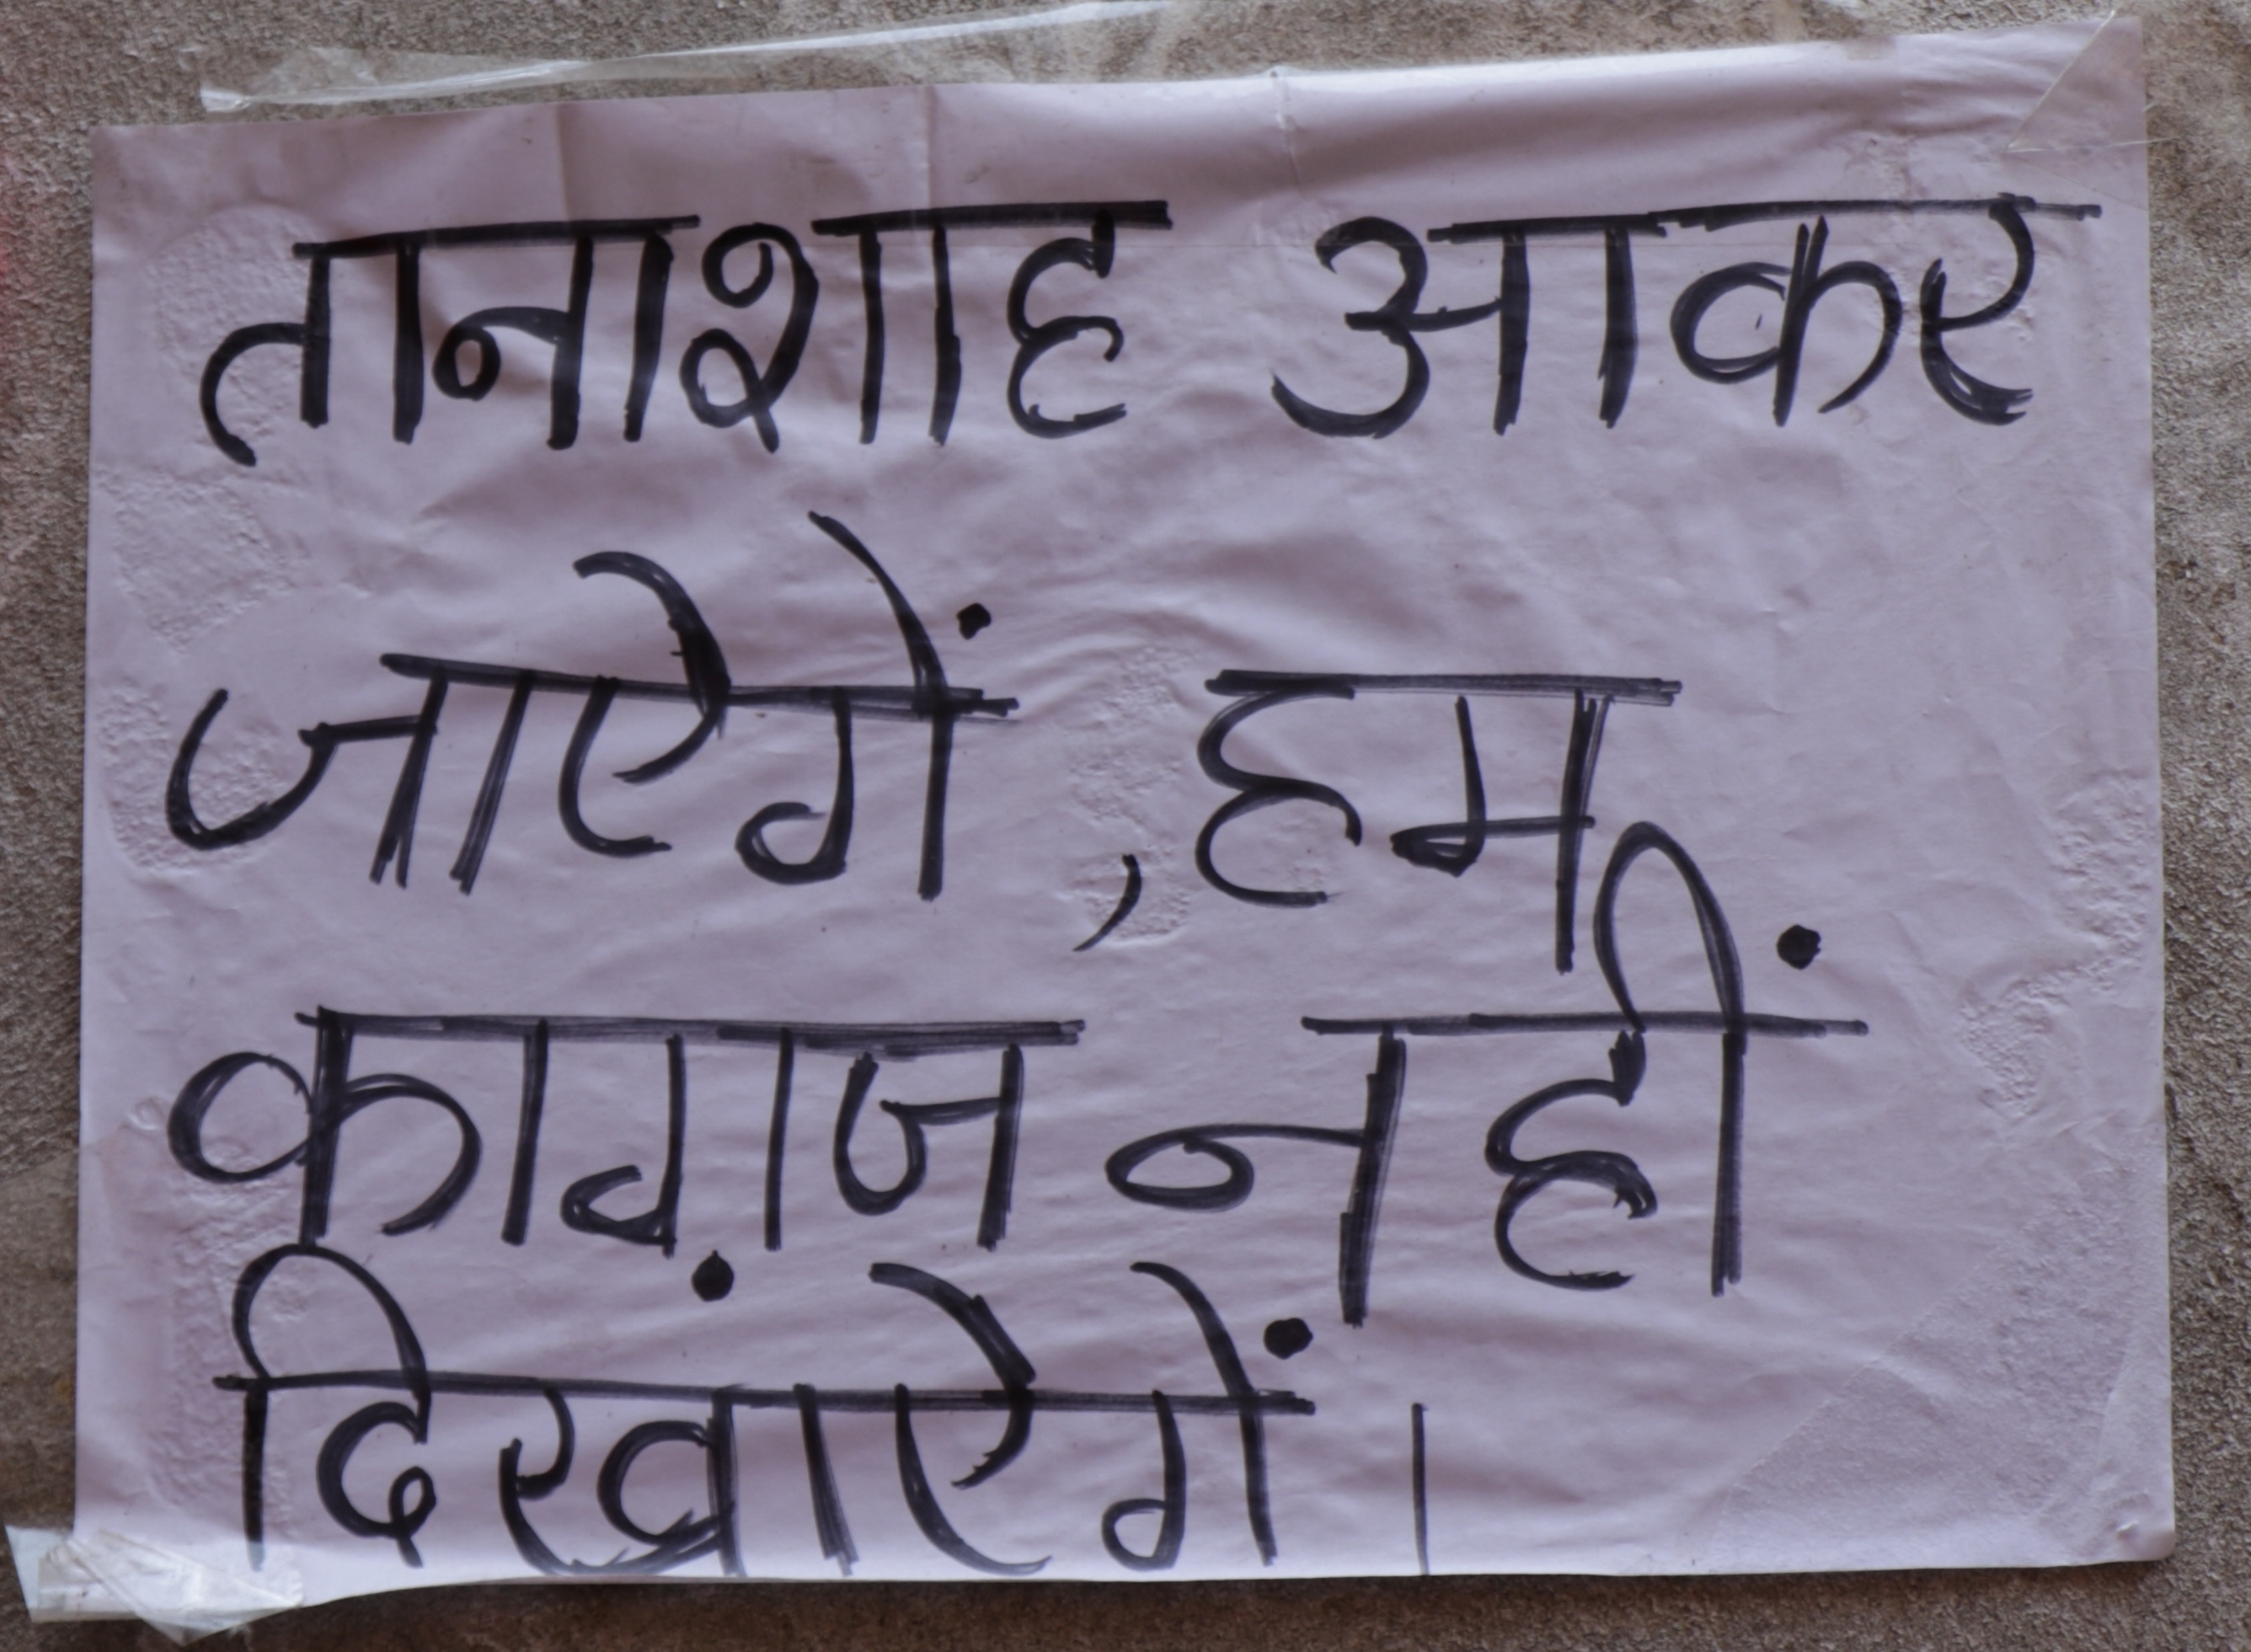 तानाशाह आकर
जाऐगें ,हम
काग़ज नहीं
दिखाऐगें।